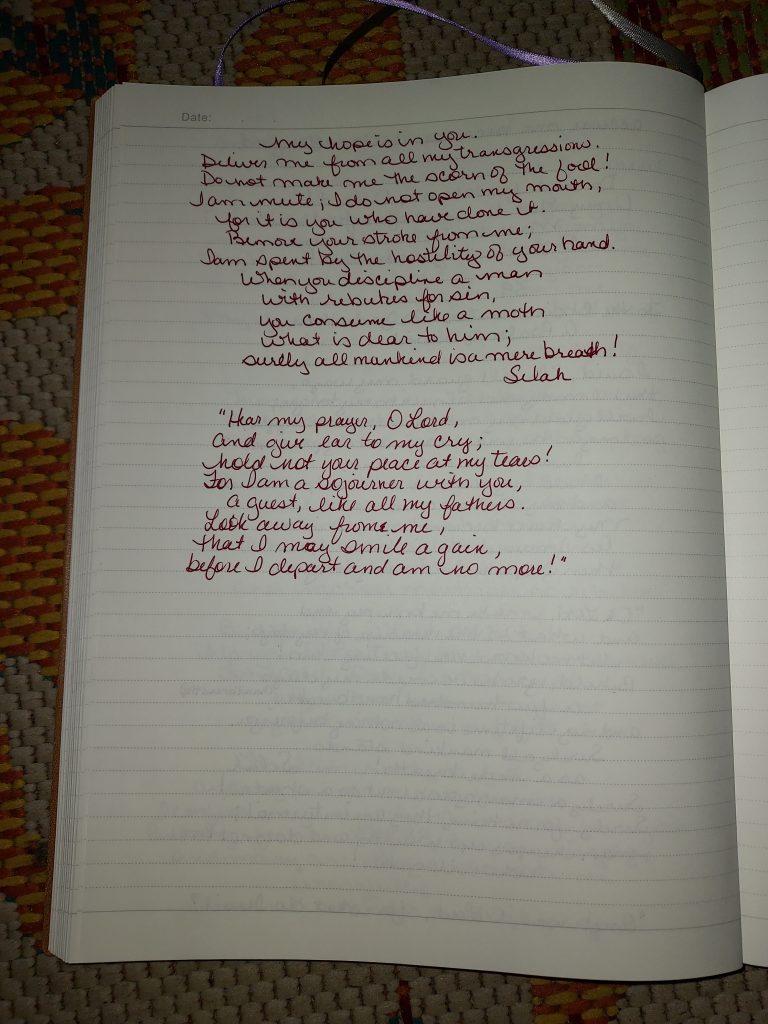 Date:
My hope is in you.
Deliver me from all my transgressions.
Do not make me the scorn of the fool!
I am mute; I do not open my mouth,
for it is you who have done it.
Remove your stroke from me;
I am spent by the hostility of your hand.
When you discipline a man
with rebukes for sin,
you consume like a moth
what is dear to him;
surely all mankind is a mere breath!
Selah
"Hear my prayer, O Lord,
and give ear to my cry;
hold not your peace at my tears!
For I am a sojourner with you,
a guest, like all my fathers.
Look away from me,
that I may smile again,
before I depart and am no more!"